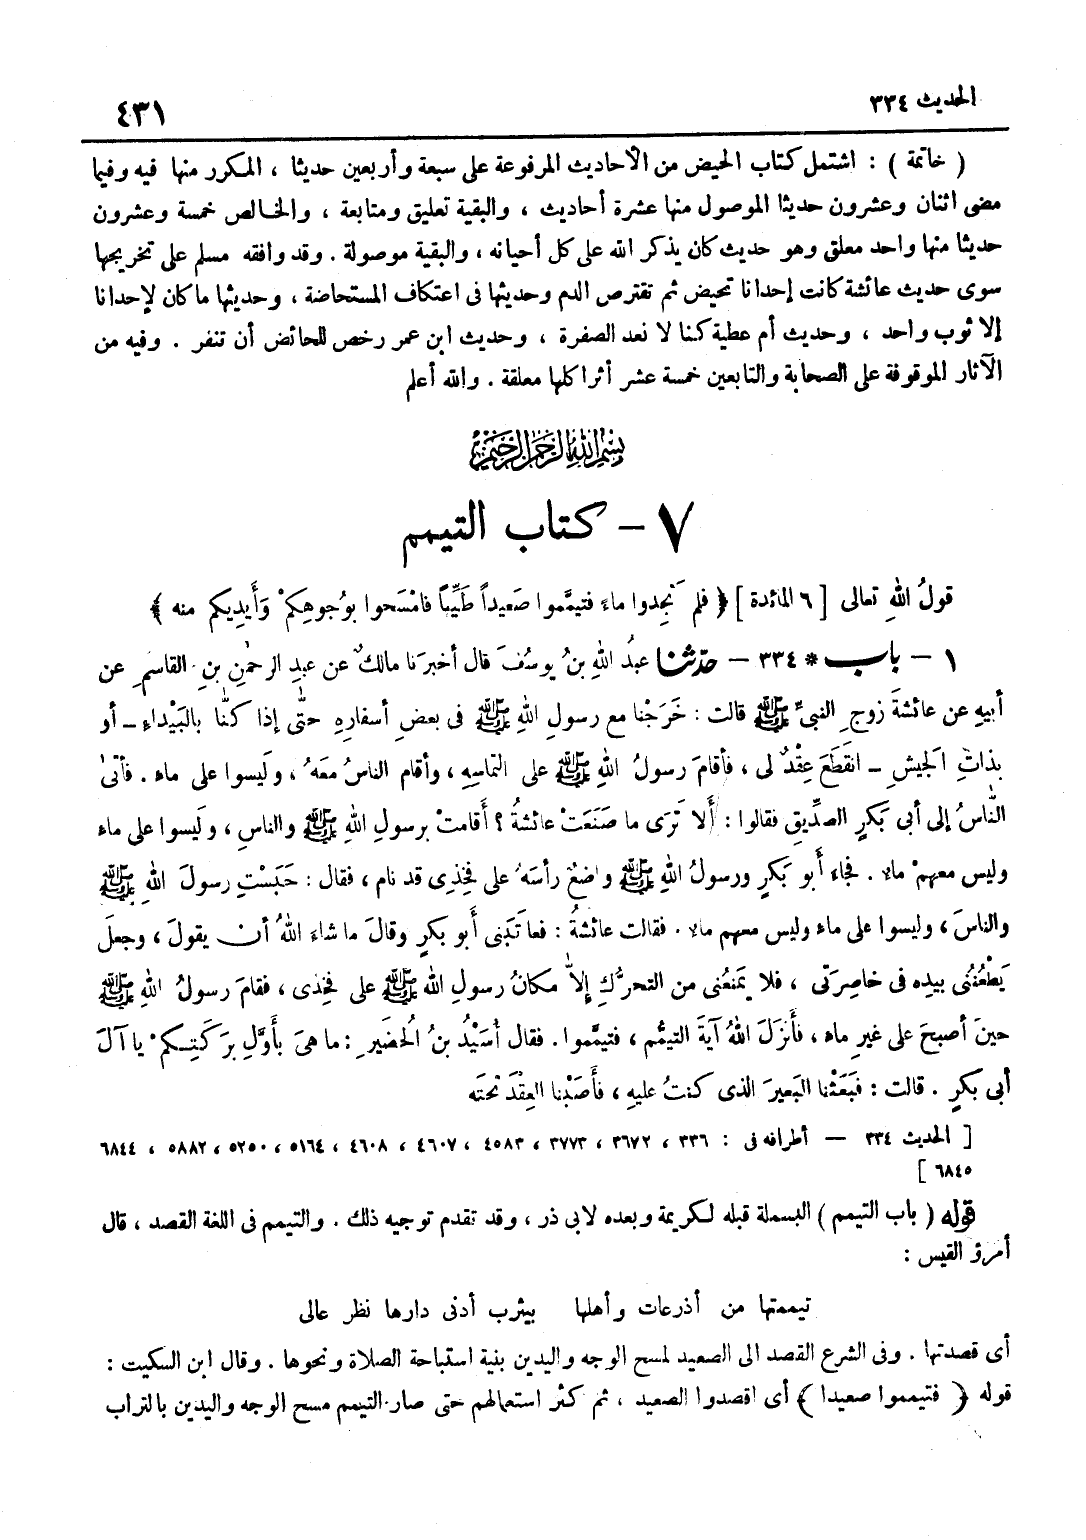 الحديث ٣٣٤
٤٣١
( خاتمة ) : اشتمل كتاب الحيض من الأحاديث المرفوعة على سبعة وأربعين حديثا ، المكرر منها فيه وفيما
مضى اثنان وعشرون حديثا الموصول منها عشرة أحاديث ، والبقية تعليق ومتابعة ، والخالص خمسة وعشرون
حديثا منها واحد معلق وهو حديث كان يذكر الله على كل أحيانه ، والبقية موصولة . وقد وافقه مسلم على تخريجها
سوى حديث عائشة كانت إحدانا تحيض ثم تقترص الدم وحديثها فى اعتكاف المستحاضة ، وحديثها ما كان لإحدانا
إلا ثوب واحد ، وحديث أم عطية كنا لا نعد الصفرة ، وحديث ابن عمر رخص للحائض أن تنفر . وفيه من
الآثار الموقوفة على الصحابة والتابعين خمسة عشر أثرا كلها معلقة . والله أعلم
بسم الله الرحمن الرحيم
٧ - كتاب التيمم
قولُ اللهِ تعالى [ ٦ المائدة ] ﴿ فلم تَجِدوا ماءً فتيمَّموا صَعيداً طَيِّباً فامْسَحوا بوُجوهِكمْ وَأَيديكم منه ﴾
١ - باب * ٣٣٤ - حدّثنا عبدُ اللهِ بنُ يوسُفَ قال أخبرَنا مالكٌ عن عبدِ الرحمٰنِ بنِ القاسمِ عن
أبيهِ عن عائشةَ زوجِ النبىِّ ﷺ قالت : خَرَجْنا مع رسولِ اللهِ ﷺ فى بعضِ أسفارِهِ حتّٰى إذا كنّا بالبَيْداءِ - أو
بذاتِ الجَيشِ - انقَطَعَ عِقْدٌ لى ، فأقامَ رسولُ اللهِ ﷺ على التماسِهِ ، وأقام الناسُ معَهُ ، وليسوا على ماء . فأتىٰ
النّاسُ إلى أبى بَكرٍ الصدِّيقِ فقالوا : ألا تَرَى ما صَنَعَتْ عائشةُ ؟ أقامتْ برسولِ اللهِ ﷺ والناسِ ، وليسوا على ماء
وليس معهمْ ماء . فجاء أبو بَكرٍ ورسولُ اللهِ ﷺ واضعٌ رأسَهُ على فَخِذى قد نام ، فقال : حَبَسْتِ رسولَ اللهِ ﷺ
والناسَ ، وليسوا على ماء وليس معهم ماء . فقالت عائشةُ : فعاتَبَنى أبو بكرٍ وقالَ ما شاءَ اللهُ أن يقولَ ، وجعلَ
يَطْعُنُنى بيدِه فى خاصِرَتى ، فلا يَمنَعُنى من التحرُّكِ إلاّ مكانُ رسولِ اللهِ ﷺ على فَخِذى ، فقامَ رسولُ اللهِ ﷺ
حينَ أصبحَ على غيرِ ماء ، فأَنزَلَ اللهُ آيةَ التيمُّم ، فتيمَّموا . فقال أُسَيْدُ بنُ الحُضَيرِ : ما هىَ بأوَّلِ بَرَكَتِكمْ يا آلَ
أبى بكرٍ . قالت : فبَعَثْنا البَعيرَ الذى كنتُ عليهِ ، فأَصَبْنا العِقْدَ تحتَه
[ الحديث ٣٣٤ - أطرافه فى : ٣٣٦ ، ٣٦٧٢ ، ٣٧٧٣ ، ٤٥٨٣ ، ٤٦٠٧ ، ٤٦٠٨ ، ٥١٦٤ ، ٥٢٥٠ ، ٥٨٨٢ ، ٦٨٤٤
٦٨٤٥ ]
قوله ( باب التيمم ) البسملة قبله لكريمة وبعده لابى ذر ، وقد تقدم توجيه ذلك . والتيمم فى اللغة القصد ، قال
أمرؤ القيس :
تيممتها من أذرعات وأهلها بيثرب أدنى دارها نظر عالى
أى قصدتها . وفى الشرع القصد الى الصعيد لمسح الوجه واليدين بنية استباحة الصلاة ونحوها . وقال ابن السكيت :
قوله ﴿ فتيمموا صعيدا ﴾ أى اقصدوا الصعيد ، ثم كثر استعمالهم حتى صار التيمم مسح الوجه واليدين بالتراب